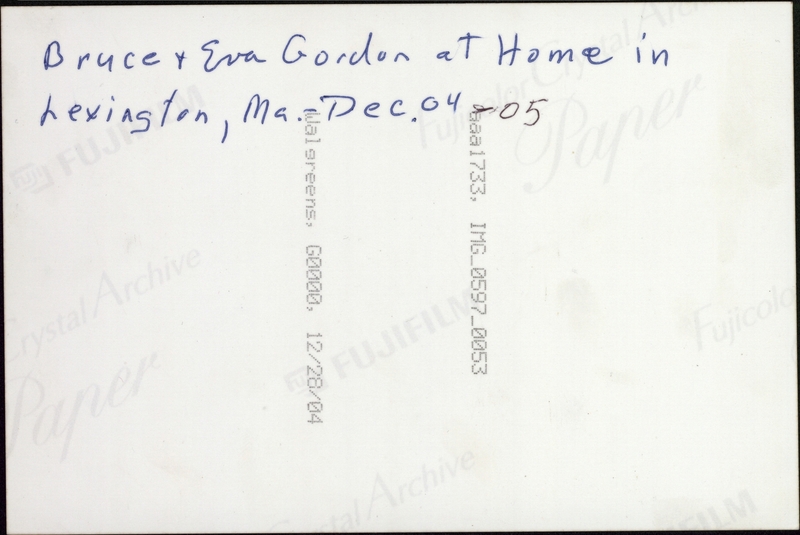 Bruce + Eva Gordon at Home in
Lexington, Ma. - Dec. 04 - 05
Walgreens, G0000, 12/28/04
aaa1733, IMG_0597_0053
Fujicolor Crystal Archive
Paper
FUJIFILM
Crystal Archive
Paper
FUJIFILM
Fujicolor
Crystal Archive
FUJIFILM